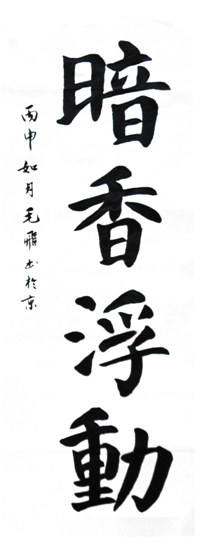 暗香浮動
丙申如月毛鵬书於京